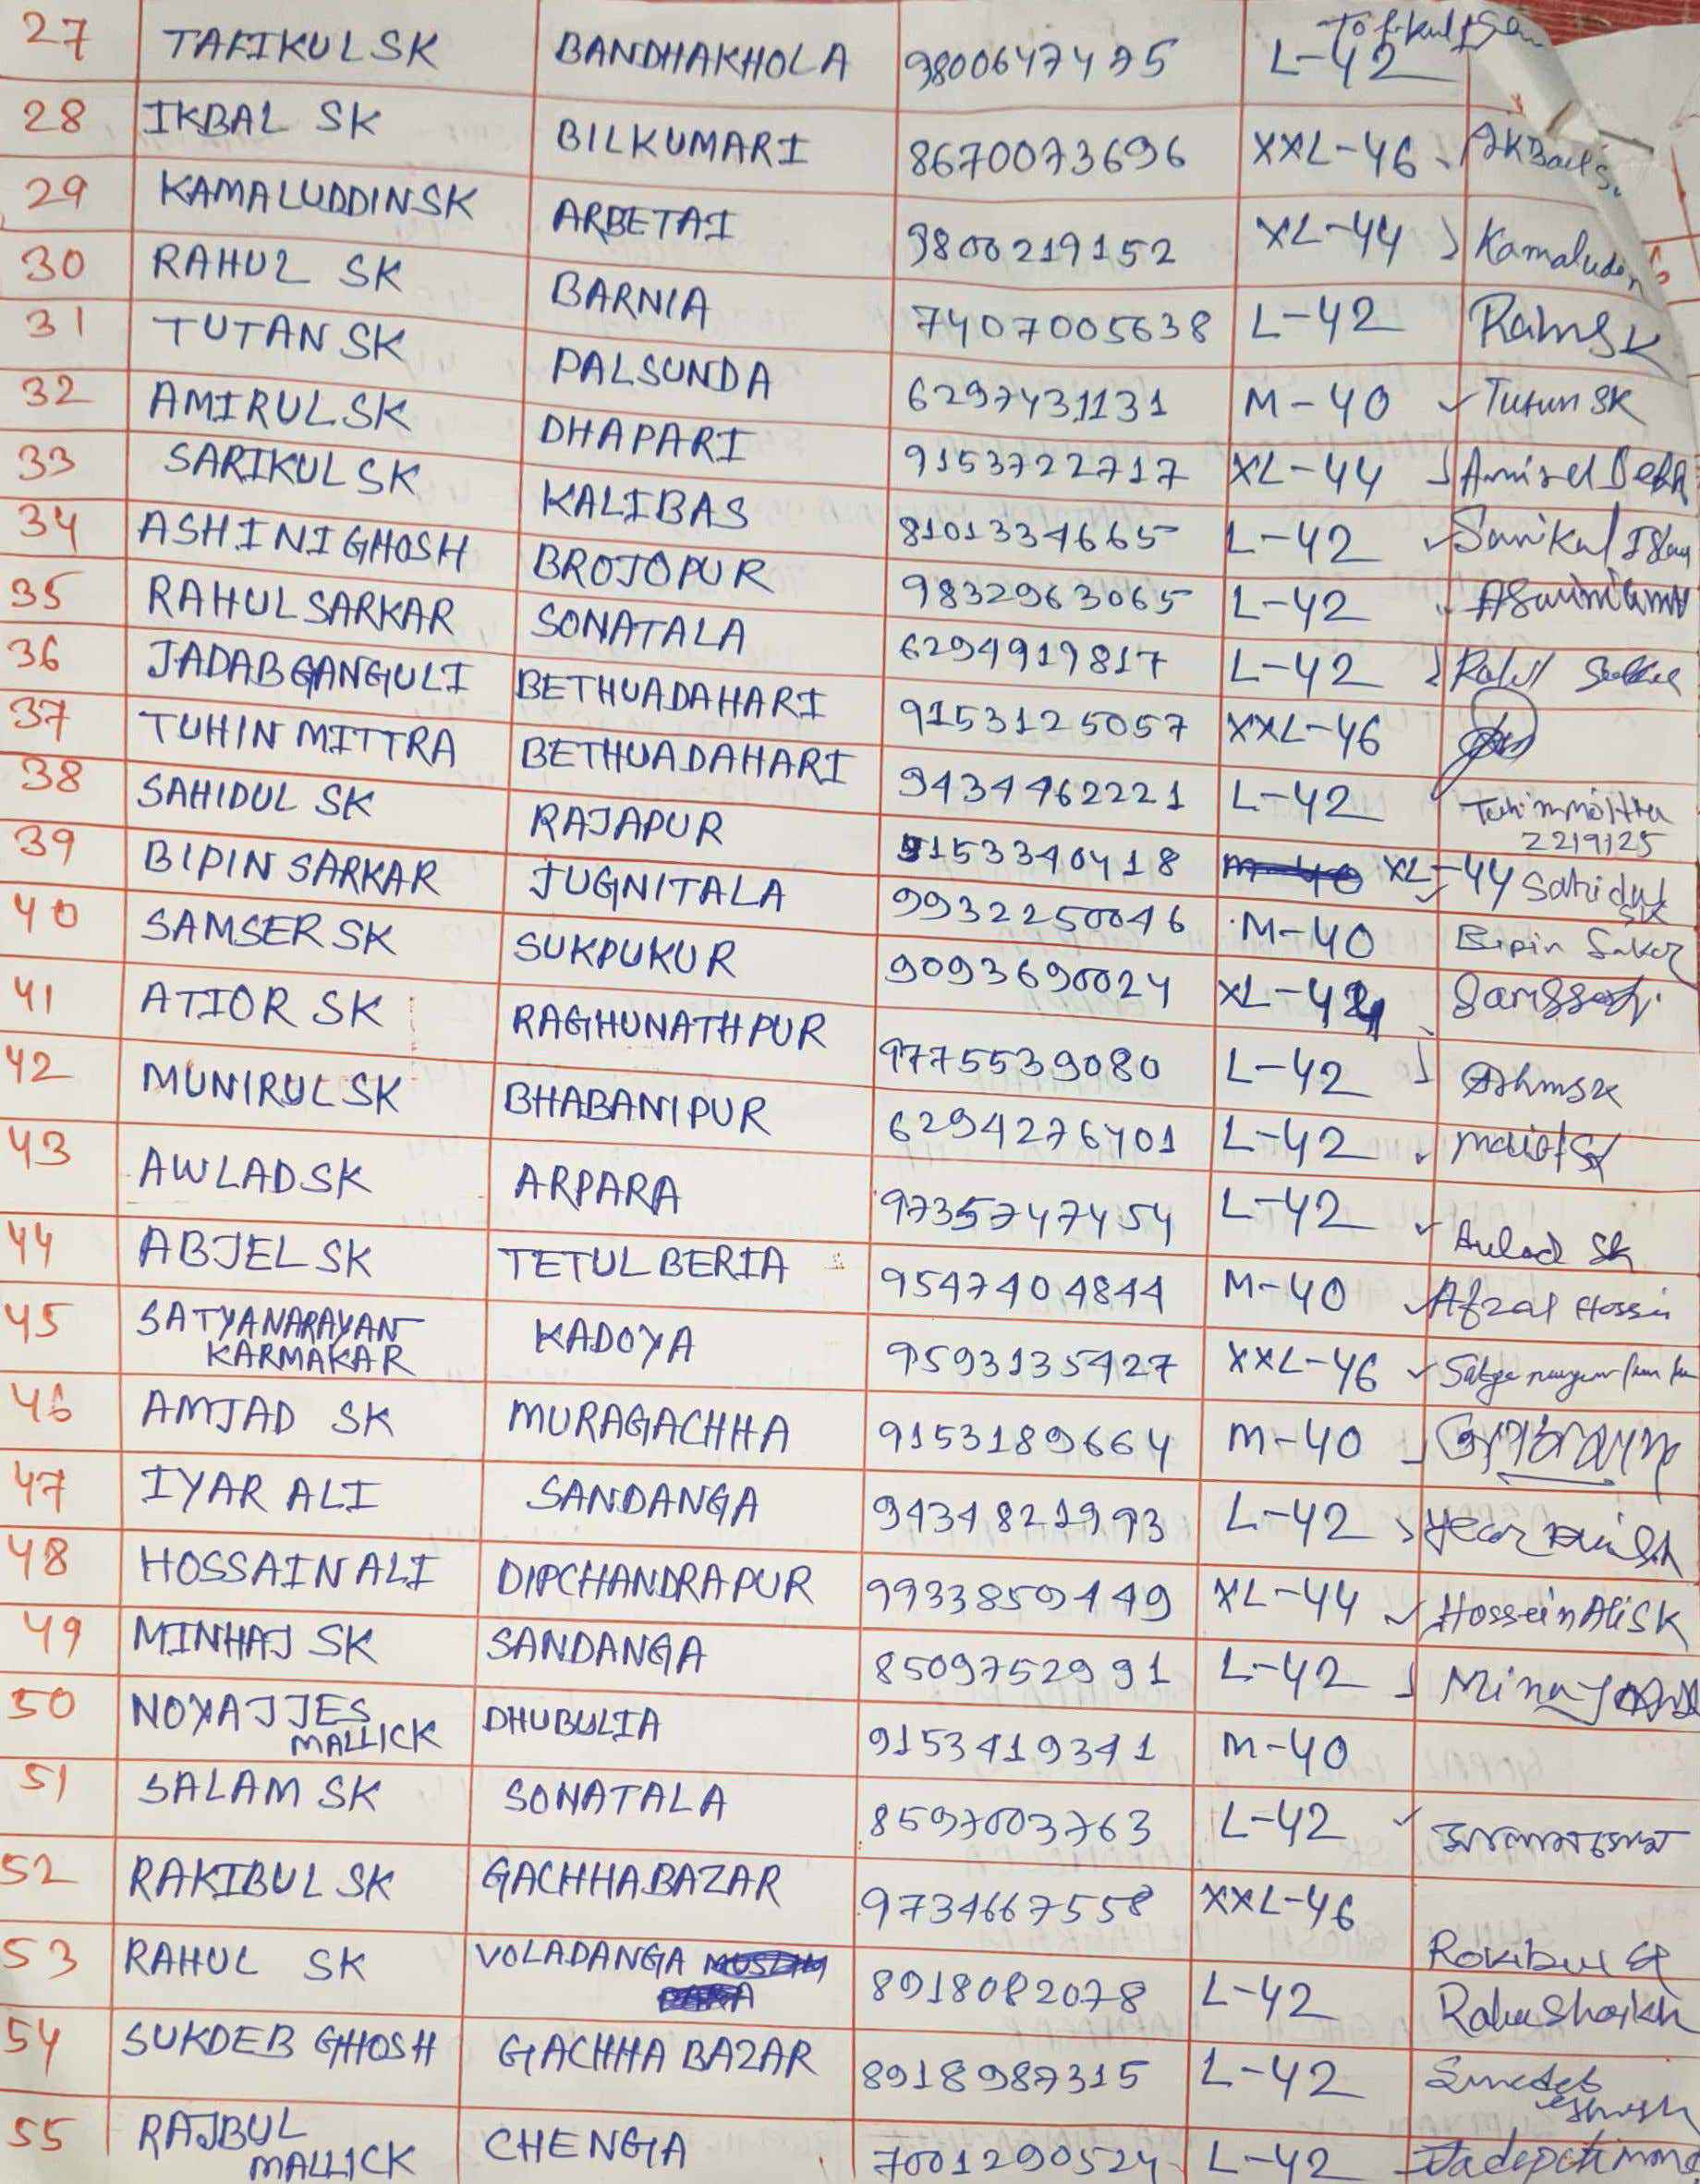 27 TAFIKUL SK BANDHAKHOLA 9800647475 L-42
28 IKBAL SK BILKUMARI 8670073696 XXL-46
29 KAMALUDDIN SK ARBETAI 9800219152 XL-44 Kamaluden
30 RAHUL SK BARNIA 7407005638 L-42
31 TUTAN SK PALSUNDA 6297431131 M-40 Tutun SK
32 AMIRUL SK DHAPARI 9153722717 XL-44
33 SARIKUL SK KALIBAS 8101334665 L-42 Sarikul Islam
34 ASHINI GHOSH BROJOPUR 9832963065 L-42
35 RAHUL SARKAR SONATALA 6294919817 L-42
36 JADAB GANGULI BETHUADAHARI 9153125057 XXL-46
37 TUHIN MITTRA BETHUADAHARI 9434462221 L-42 Tuhin Moittra
22/9/25
38 SAHIDUL SK RAJAPUR 9153340418 XL-44 Sahidul
SK
39 BIPIN SARKAR JUGNITALA 9932250046 M-40 Bipin Sakar
40 SAMSER SK SUKPUKUR 9093690024 XL-44
41 ATIOR SK RAGHUNATHPUR 9775539080 L-42
42 MUNIRUL SK BHABANIPUR 6294276401 L-42
43 AWLAD SK ARPARA 9735747454 L-42 Aulad SK
44 ABJEL SK TETULBERIA 9547404844 M-40 Afzal Hossin
45 SATYANARAYAN KADOYA 9593135427 XXL-46
KARMAKAR
46 AMJAD SK MURAGACHHA 9153189664 M-40
47 IYAR ALI SANDANGA 9434821993 L-42
48 HOSSAIN ALI DIPCHANDRAPUR 9933850449 XL-44 Hossein Ali SK
49 MINHAJ SK SANDANGA 8509752991 L-42
50 NOYAJJES DHUBULIA 9153419341 M-40
MALLICK
51 SALAM SK SONATALA 8597003763 L-42
52 RAKIBUL SK GACHHA BAZAR 9734667558 XXL-46 Rokibul SK
53 RAHUL SK VOLADANGA 8918082078 L-42 Rahu Shaikh
54 SUKDEB GHOSH GACHHA BAZAR 8918987315 L-42
55 RAJBUL CHENGA 7001290524 L-42
MALLICK